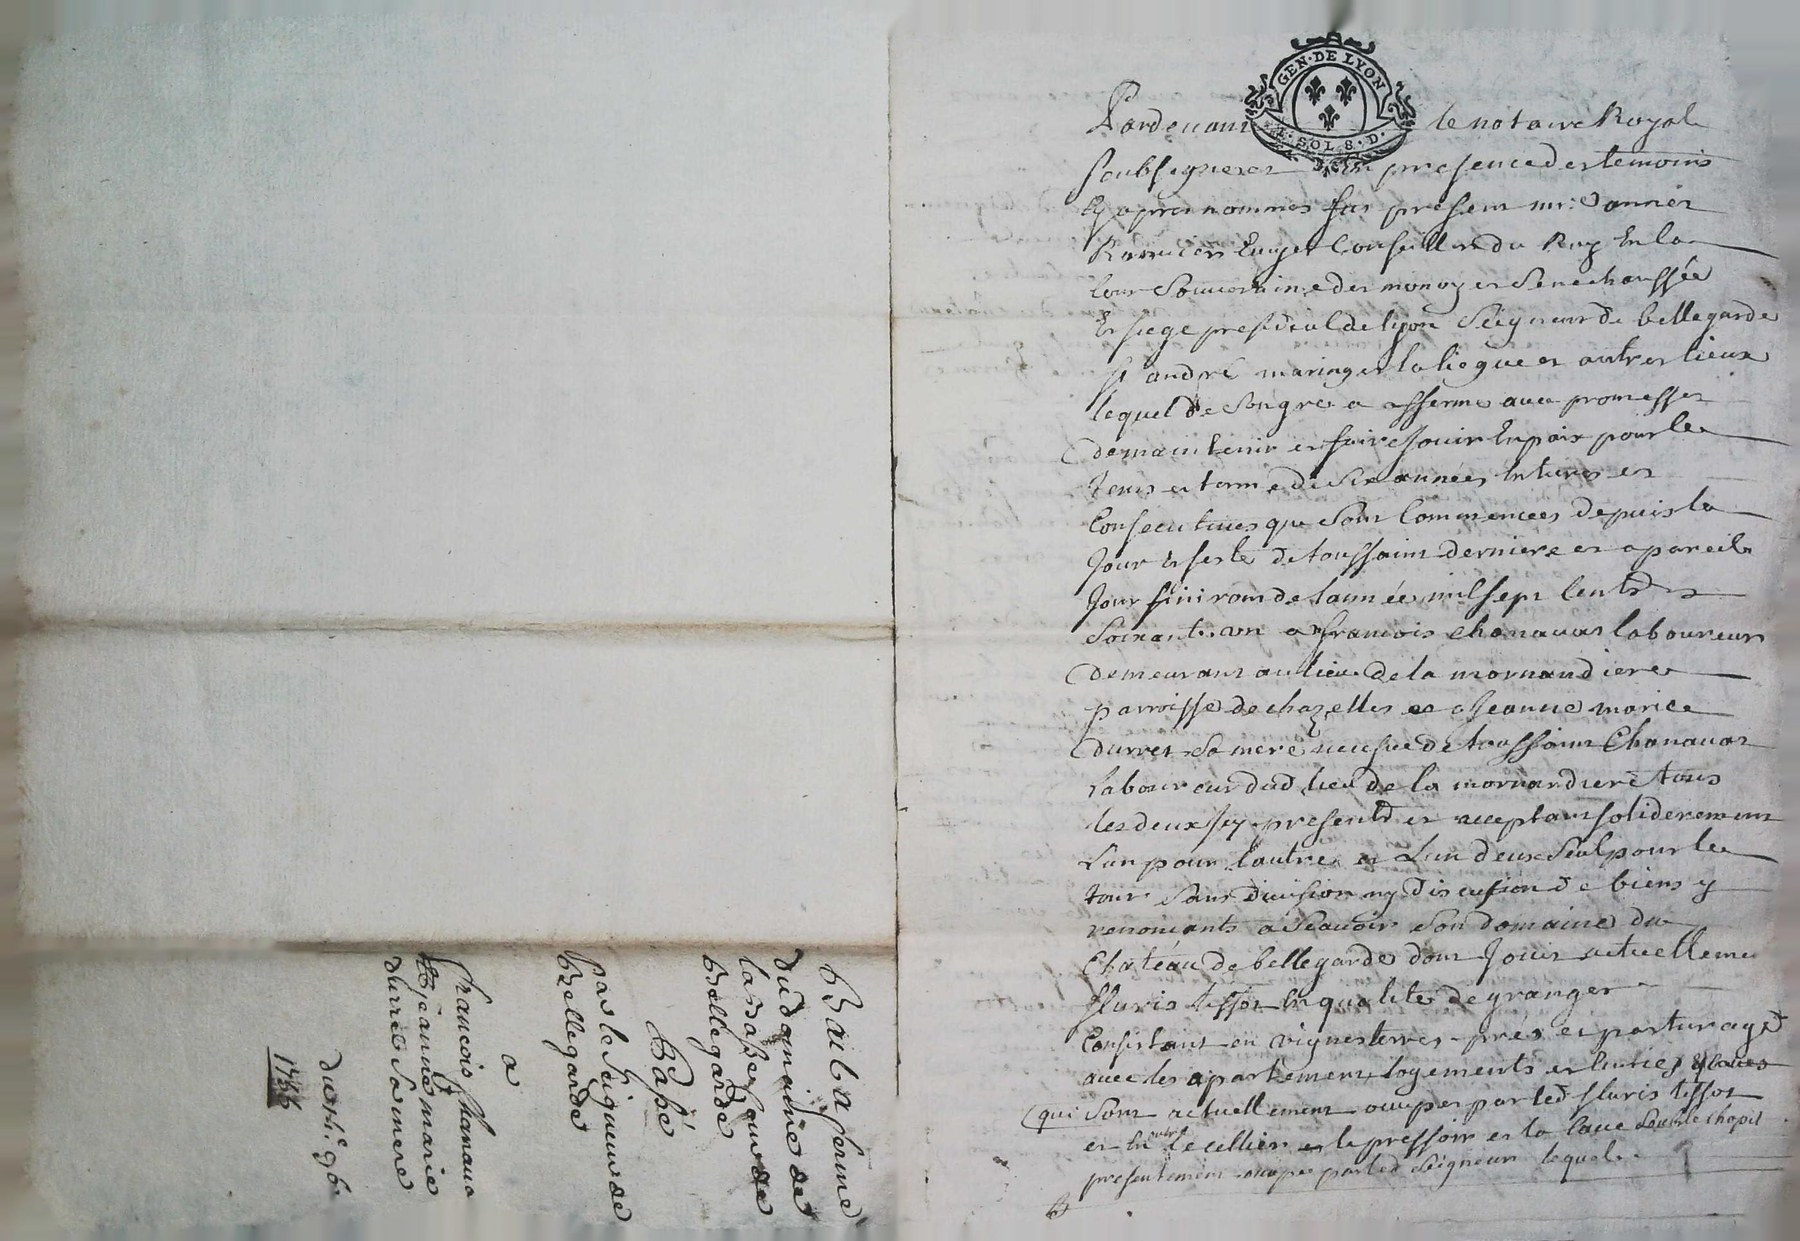 Bail a ferme
du domaine de
la basse cour de
Bellegarde
Passé
par le seigneur de
Bellegarde
a
francois chanava
et jeanne marie
durret sa mere
du
1755
GEN·DE LYON
1·SOL 8·D·
Pardevant le notaire Royal
soubsignerez En presence des temoins
Cy apres nommes fut present mr:
Ecuyer Conseiller du Roy En la
Cour Souveraine des monoyes Senechaussée
Et siege presidial de lyon Seigneur de bellegarde
st andré maringes la liegue et autres lieux
lequel de Son gré a affermé avec promesses
de maintenir et faire Jouir En paix pour le
tems et terme de Six années Entieres et
Consecutives qui Sont Commencees depuis le
Jour Et feste de toussaint derniere et a pareil
Jour finiront de lannée mil sept Cents
Soixant un a francois chanavat laboureur
demeurant au lieu de la mornandiere
parroisse de chazelles et a Jeanne marie
durret Sa mere veufve de toussaint Chanavat
laboureur dud lieu de la mornandiere tous
les deux Icy presents et acceptant soliderement
Lun pour lautre et Lun deux Seul pour le
tout Sans division ny discution de biens y
renonçants a Scavoir Son domaine du
Chateau de bellegarde dont Jouit actuelleme
fluris tissot En qualité de granger
Consistant en vignes terres prés et pasturage
avec les apartement logements et Ecuries
qui Sont actuellement occupes par led fluris tissot
et En outre le cellier et le pressoir et la Cave Sous le chapit
presentement occupé par led Seigneur lequel